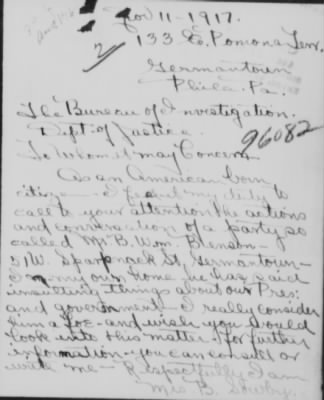 Nov 11-1917.
133 E. Pomona Terr.
2
Germantown
Phila. Pa.
The Bureau of Investigation.
Dept. of Justice.
96082
To Whom it may Concern
As an American born
citizen - I feel my duty to
call to your attention the actions
and conversation of a party so
called Mr B. Wm. Brenson -
51 W. St. Germantown -
In my own home he has said
insulting things about our Pres:
and government - I really consider
him a foe - and wish you would
look into this matter - for further
information - you can consult or
with me - Respectfully I am
Mrs B.